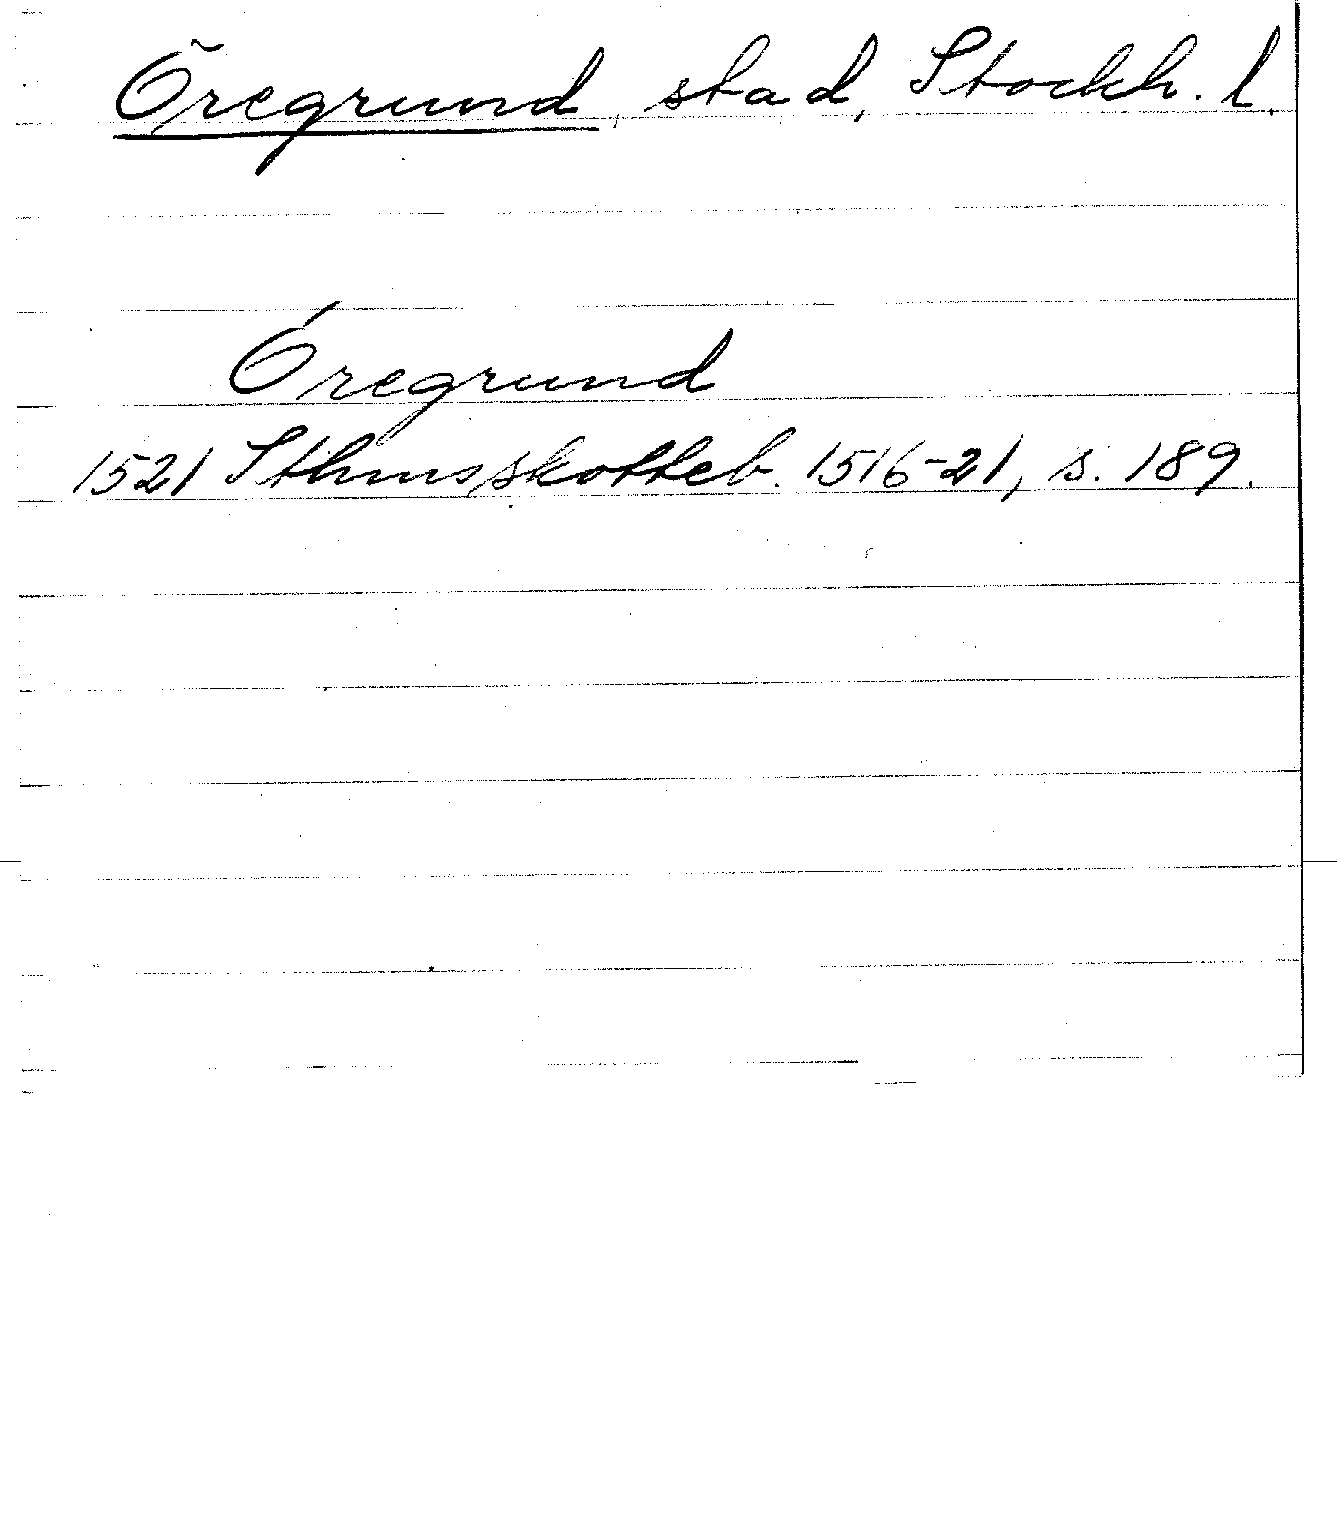 Öregrund, stad, Stockh. l.
Óregrund
1521 Sthmsskotteb. 1516-21, s. 189.